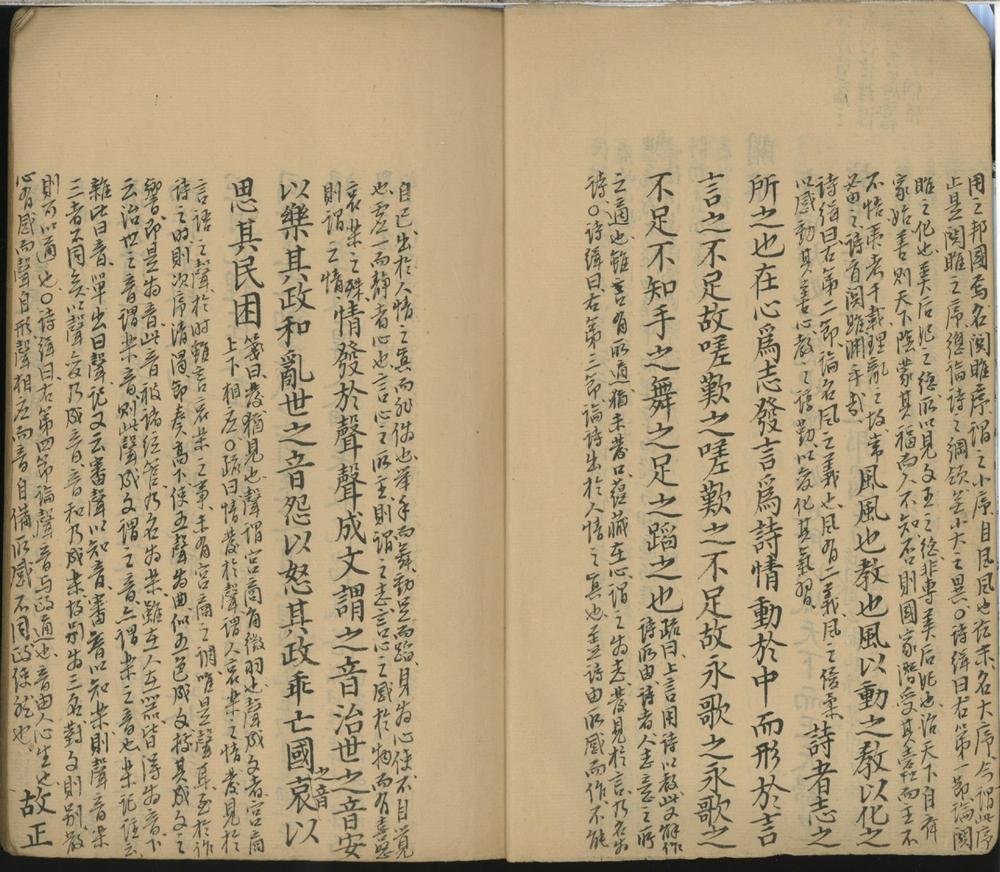 用之邦國焉名關雎序謂之小序自風風也訖末名大序今謂此序
止是關雎之序總論詩之綱領無小大之異○詩緝曰右第一節論關
雎之化也美后妃之德所以見文王之德非專美后妃也治天下自齊
家始善則天下陰蒙其福而人不知否則國家階受其
不悟
必由之詩首關雎淵乎哉風風也教也風以動之教以化之
詩緝曰右第二節論名風之義也風有二義風之
以感動其善心教之諄勤以變化其氣習詩者志之
所之也在心爲志發言爲詩情動於中而形於言
言之不足故嗟歎之嗟歎之不足故永歌之永歌之
不足不知手之舞之足之蹈之也疏曰上言用詩以教此又解作
詩所由詩者人志意之所
之適也雖有所適猶未發口蘊藏在心謂之為志發見於言乃名為
詩○詩緝曰右第三節論詩出於人情之真也
自已出於人情之真而非偽也舉手而舞動足而蹈身為心使不自覺
也虛一而靜者心也言心之所主則謂之志言心之感於物而有喜怒
哀樂之殊
則謂之情情發於聲聲成文謂之音治世之音安
以樂其政和亂世之音怨以怒其政乖亡國之音哀以
思其民困箋曰發猶見也聲謂宮商角徵羽也聲成文者宮商
上下相應○疏曰情發於聲謂人哀樂之情發見於
言語之聲於時雖言哀樂之事未有宮商之調唯是聲耳至於作
詩之時則次序清濁節奏高下使五聲為曲似五色成文
響即是為音此音被諸絃管乃名為樂雖在人在器皆得為音下
云治世之音謂樂音則此聲成文謂之音亦謂樂之音也樂記註云
雜比曰音單出曰聲記又云審聲以知音審音以知樂則聲音樂
三者不同矣以聲變乃成音音和乃成樂故別為三名對文則別散
則可以通也○詩緝曰右第四節論聲音与政通也音由人心生也
心有感而聲自形聲相應而音自備所感不同政使然也故正